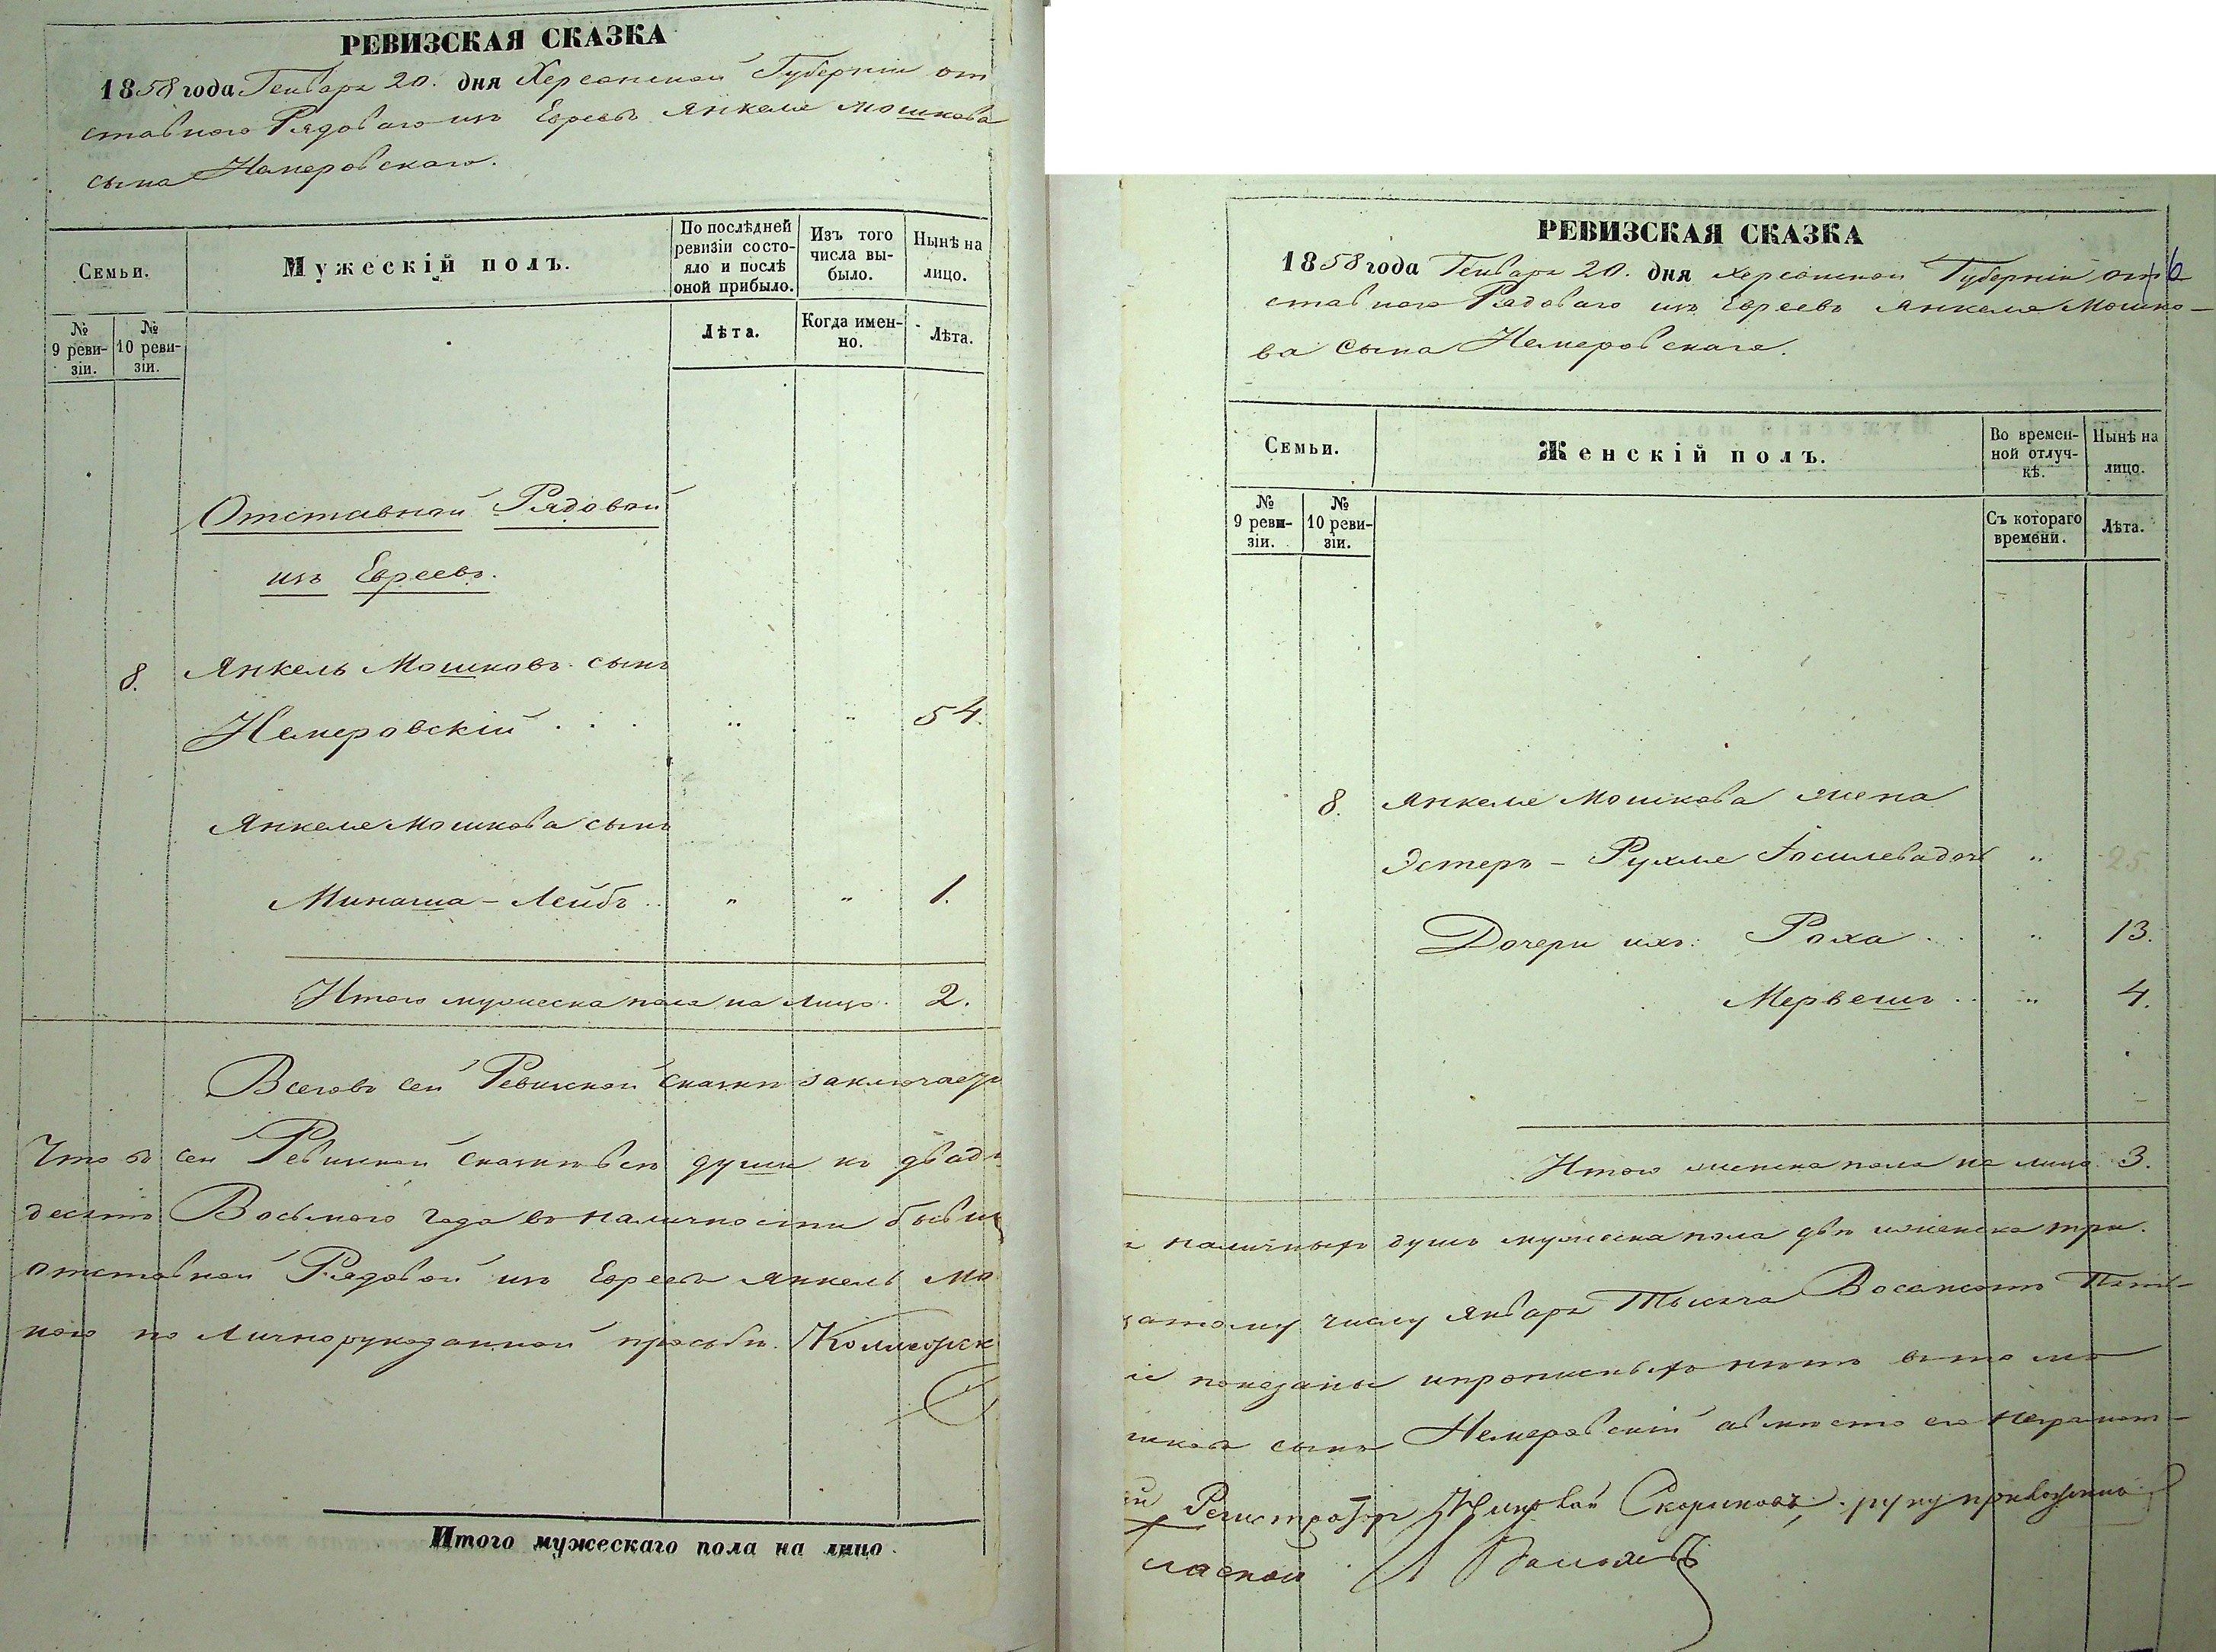 РЕВИЗСКАЯ СКАЗКА
1858 года Генваря 20. дня Херсонской Губерніи от
ставного Рядоваго изъ Евреевъ Янкеля Мошкова
сына Немеровскаго.
Семьи.
Мужескій полъ.
По послѣдней ревизіи состояло и послѣ оной прибыло.
Изъ того числа выбыло.
Нынѣ на лицо.
№ 9 ревизіи.
№ 10 ревизіи.
Лѣта.
Когда именно.
Лѣта.
Отставной Рядовой
изъ Евреевъ.
8. Янкель Мошковъ сынъ
Немеровскій . . . „ „ 54.
Янкеля Мошкова сынъ
Минаша - Лейбъ . . „ „ 1.
Итого мужеска пола на лицо. 2.
Всего въ сей Ревизской сказкѣ заключается
Что въ сей Ревизской сказкѣ всѣ души къ двад
десятъ Восьмого года въ наличности бывш
отставной Рядовой изъ Евреевъ Янкель Мо
ного по личнорукоданной просьбѣ. Коллежск
Итого мужескаго пола на лицо.
РЕВИЗСКАЯ СКАЗКА
1858 года Генваря 20. дня Херсонской Губерніи от
6
ставного Рядоваго изъ Евреевъ Янкеля Мошко-
ва сына Немеровскаго.
Семьи.
Женскій полъ.
Во временной отлучкѣ.
Нынѣ на лицо.
№ 9 ревизіи.
№ 10 ревизіи.
Съ котораго времени.
Лѣта.
8. Янкеля Мошкова жена
Эстеръ - Рухля Іосилева доч „ 25.
Дочери ихъ: Роха . . „ 13.
Мервешъ . . „ 4.
Итого женска пола на лицо 3.
наличныхъ душъ мужеска пола двѣ и женска три.
цатому числу Января Тысяча Восемсотъ Пять-
іе показаны и прописныхъ нѣтъ въ томъ
шковъ сынъ Немеровскій а вмѣсто его неграмот-
ій Регистраторъ Николай Скориковъ, руку приложилъ